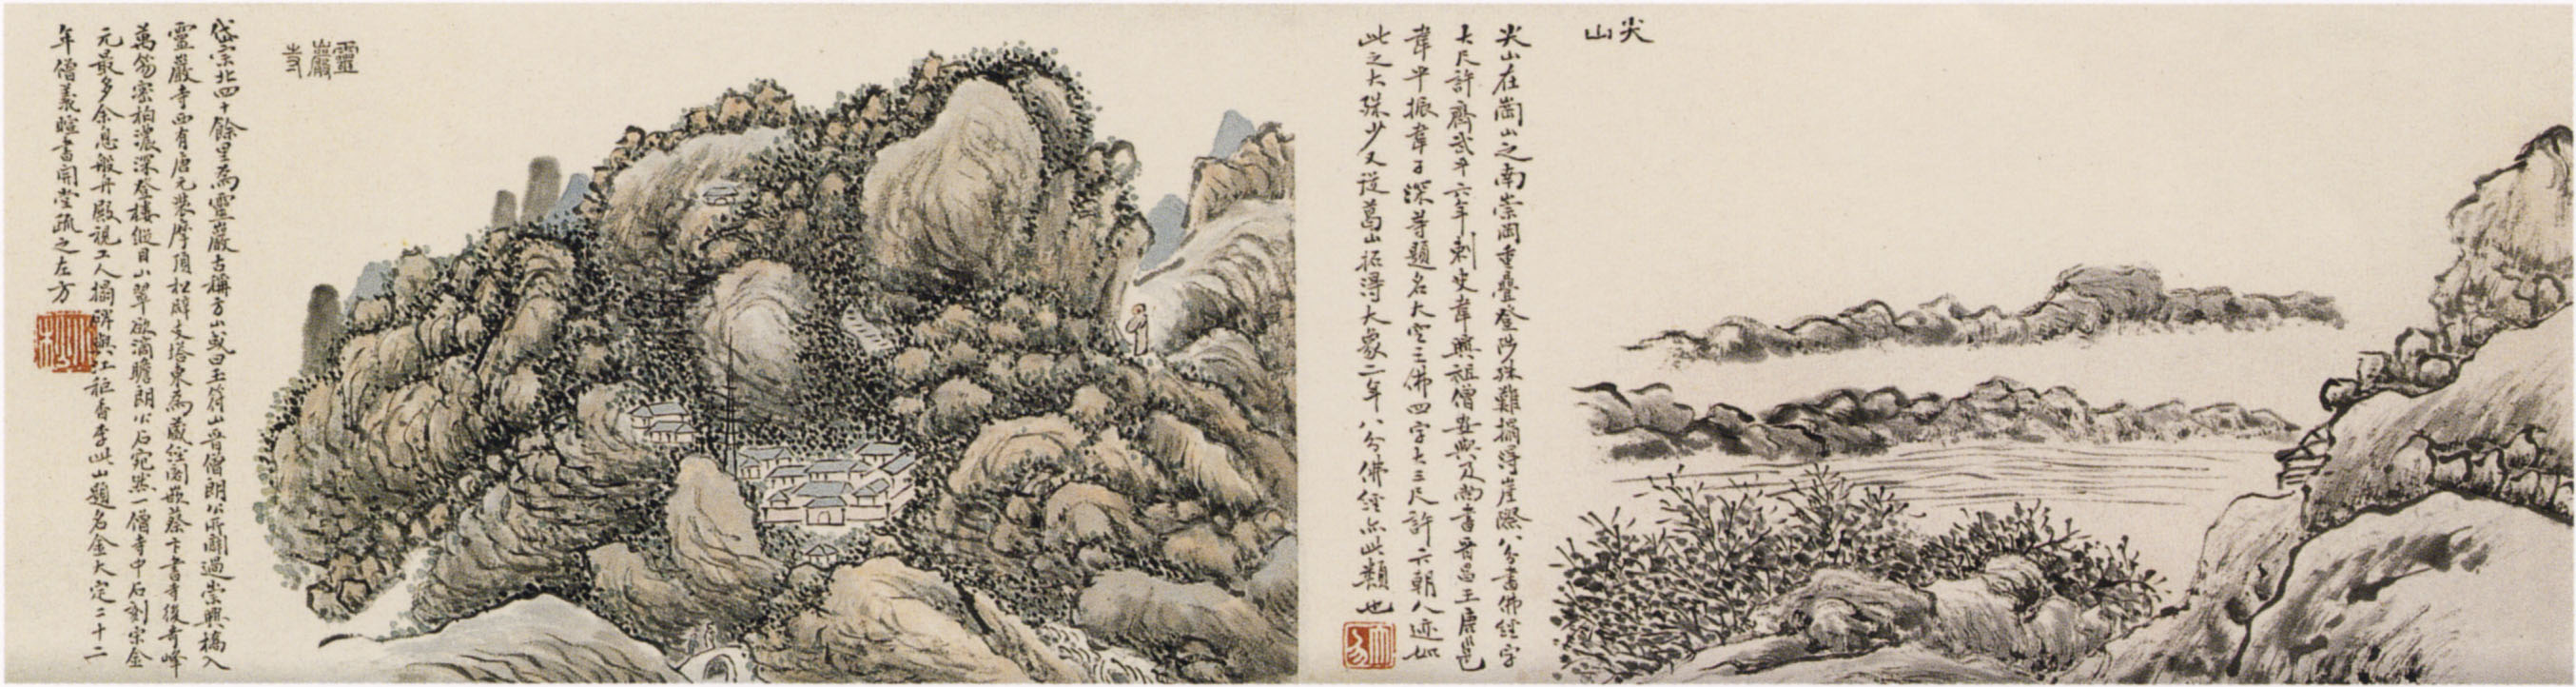 尖山
尖山在崗山之南崇岡重疊登陟殊難搨得崖際八分書佛經字
大尺許齊武平六年刺史韋興祖僧安與及尚書晉昌王唐邕
韋平振韋子深等題名大空王佛四字七三尺許六朝人迹如
此之大殊少又從葛山拓得大象二年八分佛經亦此類也
靈巖寺
岱宗北四十餘里為靈巖古稱方山或曰玉符山晉僧朗公所闢過崇興橋入
靈巖寺西有唐元奘摩頂松辟支塔東為藏經閣嵌蔡卞書寺後奇峰
萬笏密柏濃深登樓縱目山翠欲滴瞻朗公石宛然一僧寺中石刻宋金
元最多余息般舟殿視工人搨碑與江秬香李此山題名金大定二十二
年僧義瑄書開堂疏之左方